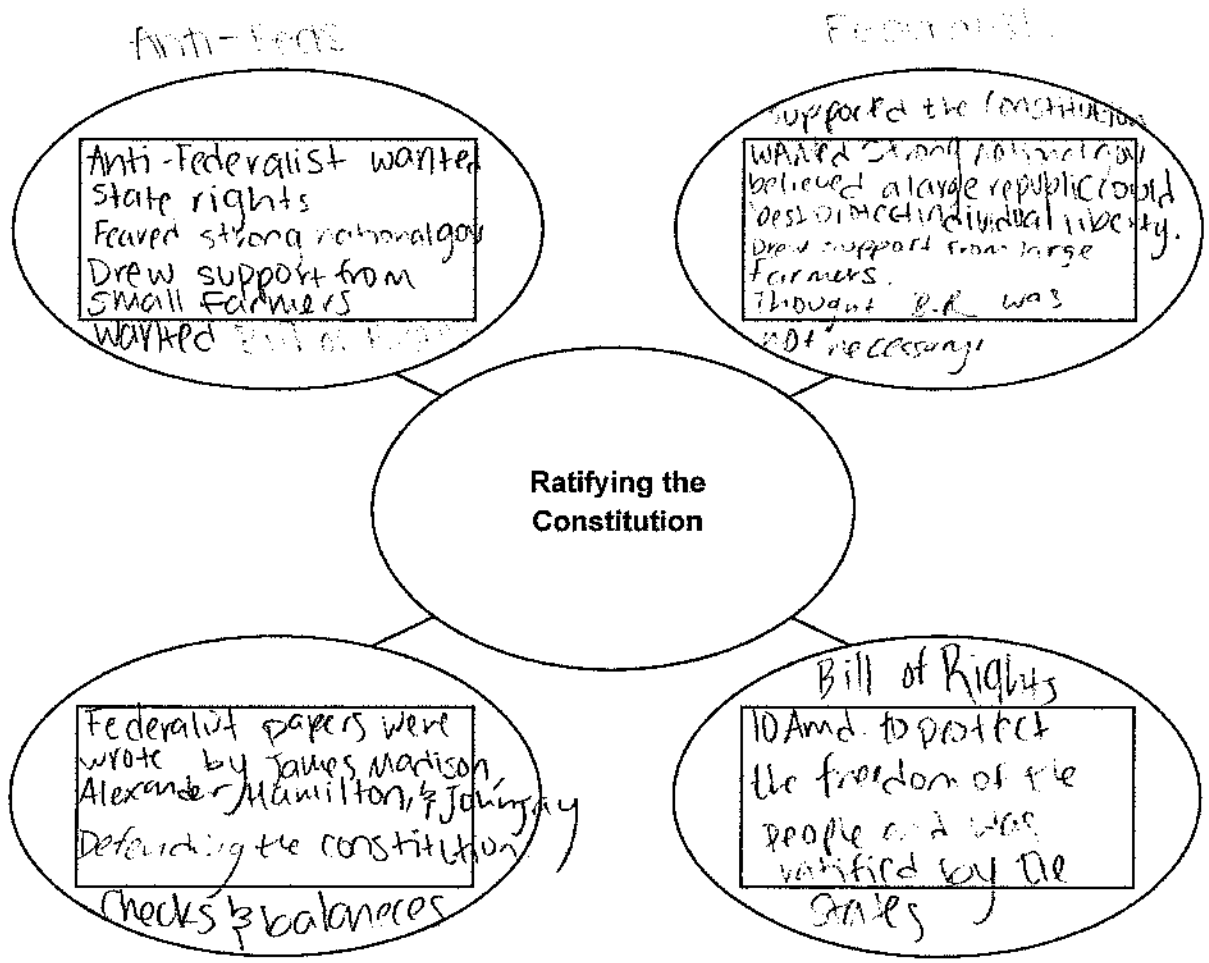 Anti-Feds
Anti-Federalist wanted
State rights
Feared strong national gov
Drew support from
small Farmers
wanted Bill of Rights
Federalist
supported the Constitution
wanted strong national gov
believed a large republic could
best protect individual liberty.
Drew support from large
farmers.
Thought B.R was
not necessary
Ratifying the
Constitution
Federalist papers were
wrote by James Madison,
Alexander Hamilton, & John Jay
Defending the constitution
Checks & balaneces
Bill of Rights
10 Amd. to protect
the freedom of the
people and was
ratified by the
States